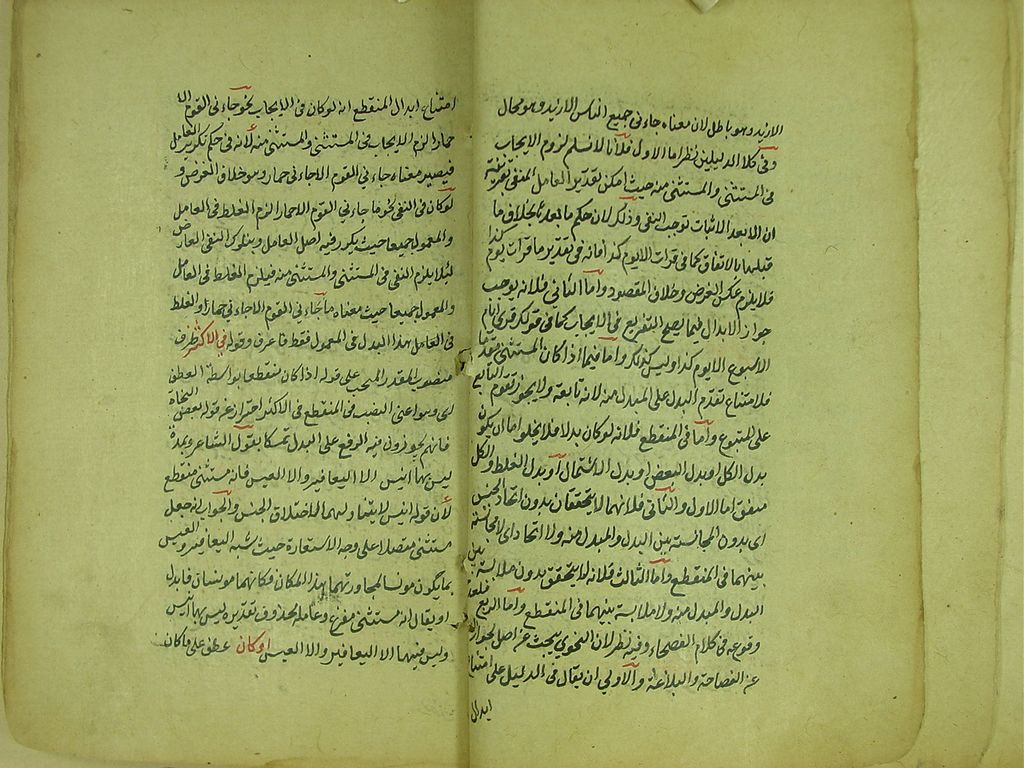 الا زيد وهو باطل لان معناه جاءنى جميع الناس الا زيد وهو محال
وفى كلا الدليلين نظر اما الاول فلانا لا نسلم لزوم الايجاب
فى المستثنى والمستثنى منه حيث امكن تقدير العامل المنفى بقرينة
ان الا بعد الاثبات توجب النفى وذلك لان حكم ما بعد الا بخلاف ما
قبلها بالاتفاق كما فى قرأت الا يوم كذا فانه فى تقدير ما قرأت يوم كذا
فلا يلزم عكس الغرض وخلاف المقصود واما الثانى فلانه يوجب
جواز الابدال فيما يصح التفريغ فى الايجاب كما فى قولك قرئ ايام
الاسبوع الا يوم كذا وليس كذلك واما فيما اذا كان المستثنى مقدما
فلامتناع تقدم البدل على المبدل منه لانه تابعه ولا يجوز تقدم التابع
على المتبوع واما فى المنقطع فلانه لو كان بدلا فلا يخلو اما ان يكون
بدل الكل او بدل البعض او بدل الاشتمال او بدل الغلط والكل
منتف اما الاول والثانى فلانهما لا يتحققان بدون اتحاد الجنس
اى بدون المجانسة بين البدل والمبدل منه ولا اتحاد اى لا مجانسة
بينهما فى المنقطع واما الثالث فلانه لا يتحقق بدون ملابسة بين
البدل والمبدل منه ولا ملابسة بينهما فى المنقطع واما الرابع فلعدم
وقوعه فى كلام الفصحاء وفيه نظر لان النحوى يبحث عن اصل الجواز
عن الفصاحة والبلاغة والاولى ان يقال فى الدليل على امتناع
ابدال
امتناع ابدال المنقطع انه لو كان فى الايجاب نحو جاءنى القوم الا
حمارا لزم الايجاب فى المستثنى والمستثنى منه لانه فى حكم تكرير العامل
فيصير معناه جاءنى القوم الا جاءنى حمار وهو خلاف الغرض و
لو كان فى النفى نحو ما جاءنى القوم الا حمارا لزم الغلط فى العامل
والمعمول جميعا حيث يكرر فيه اصل العامل ويترك النفى العارض
لئلا يلزم النفى فى المستثنى والمستثنى منه فيلزم الغلط فى العامل
والمعمول جميعا حيث معناه ما جاءنى القوم الا جاءنى حمارا والغلط
فى العامل بهذا البدل فى المعمول فقط فاعرف وقوله فى الاكثر ظرف
منصوب المقدر المنجب على قوله اذا كان منقطعا بواسطة العطف
اى وهو اعنى النصب فى المنقطع فى الاكثر احتراز عن قوله بعض النحاة
فانهم يجوزون فيه الرفع على البدل تمسكا بقول الشاعر وبلدة
ليس بها انيس الا اليعافير والا العيس فانه مستثنى منقطع
لان قوله انيس لا يتناولهما لاختلاف الجنس والجواب انه جعل
مستثنى متصلا على وجه الاستعارة حيث شبه اليعافير والعيس
بما يكون مونسا لمجاورتهما بهذا المكان فكانهما مونسان فابدل
او يقال انه مستثنى مفرغ وعامله محذوف تقديره ليس بها انيس
وليس فيها الا اليعافير والا العيس او كان عطف على ما كان